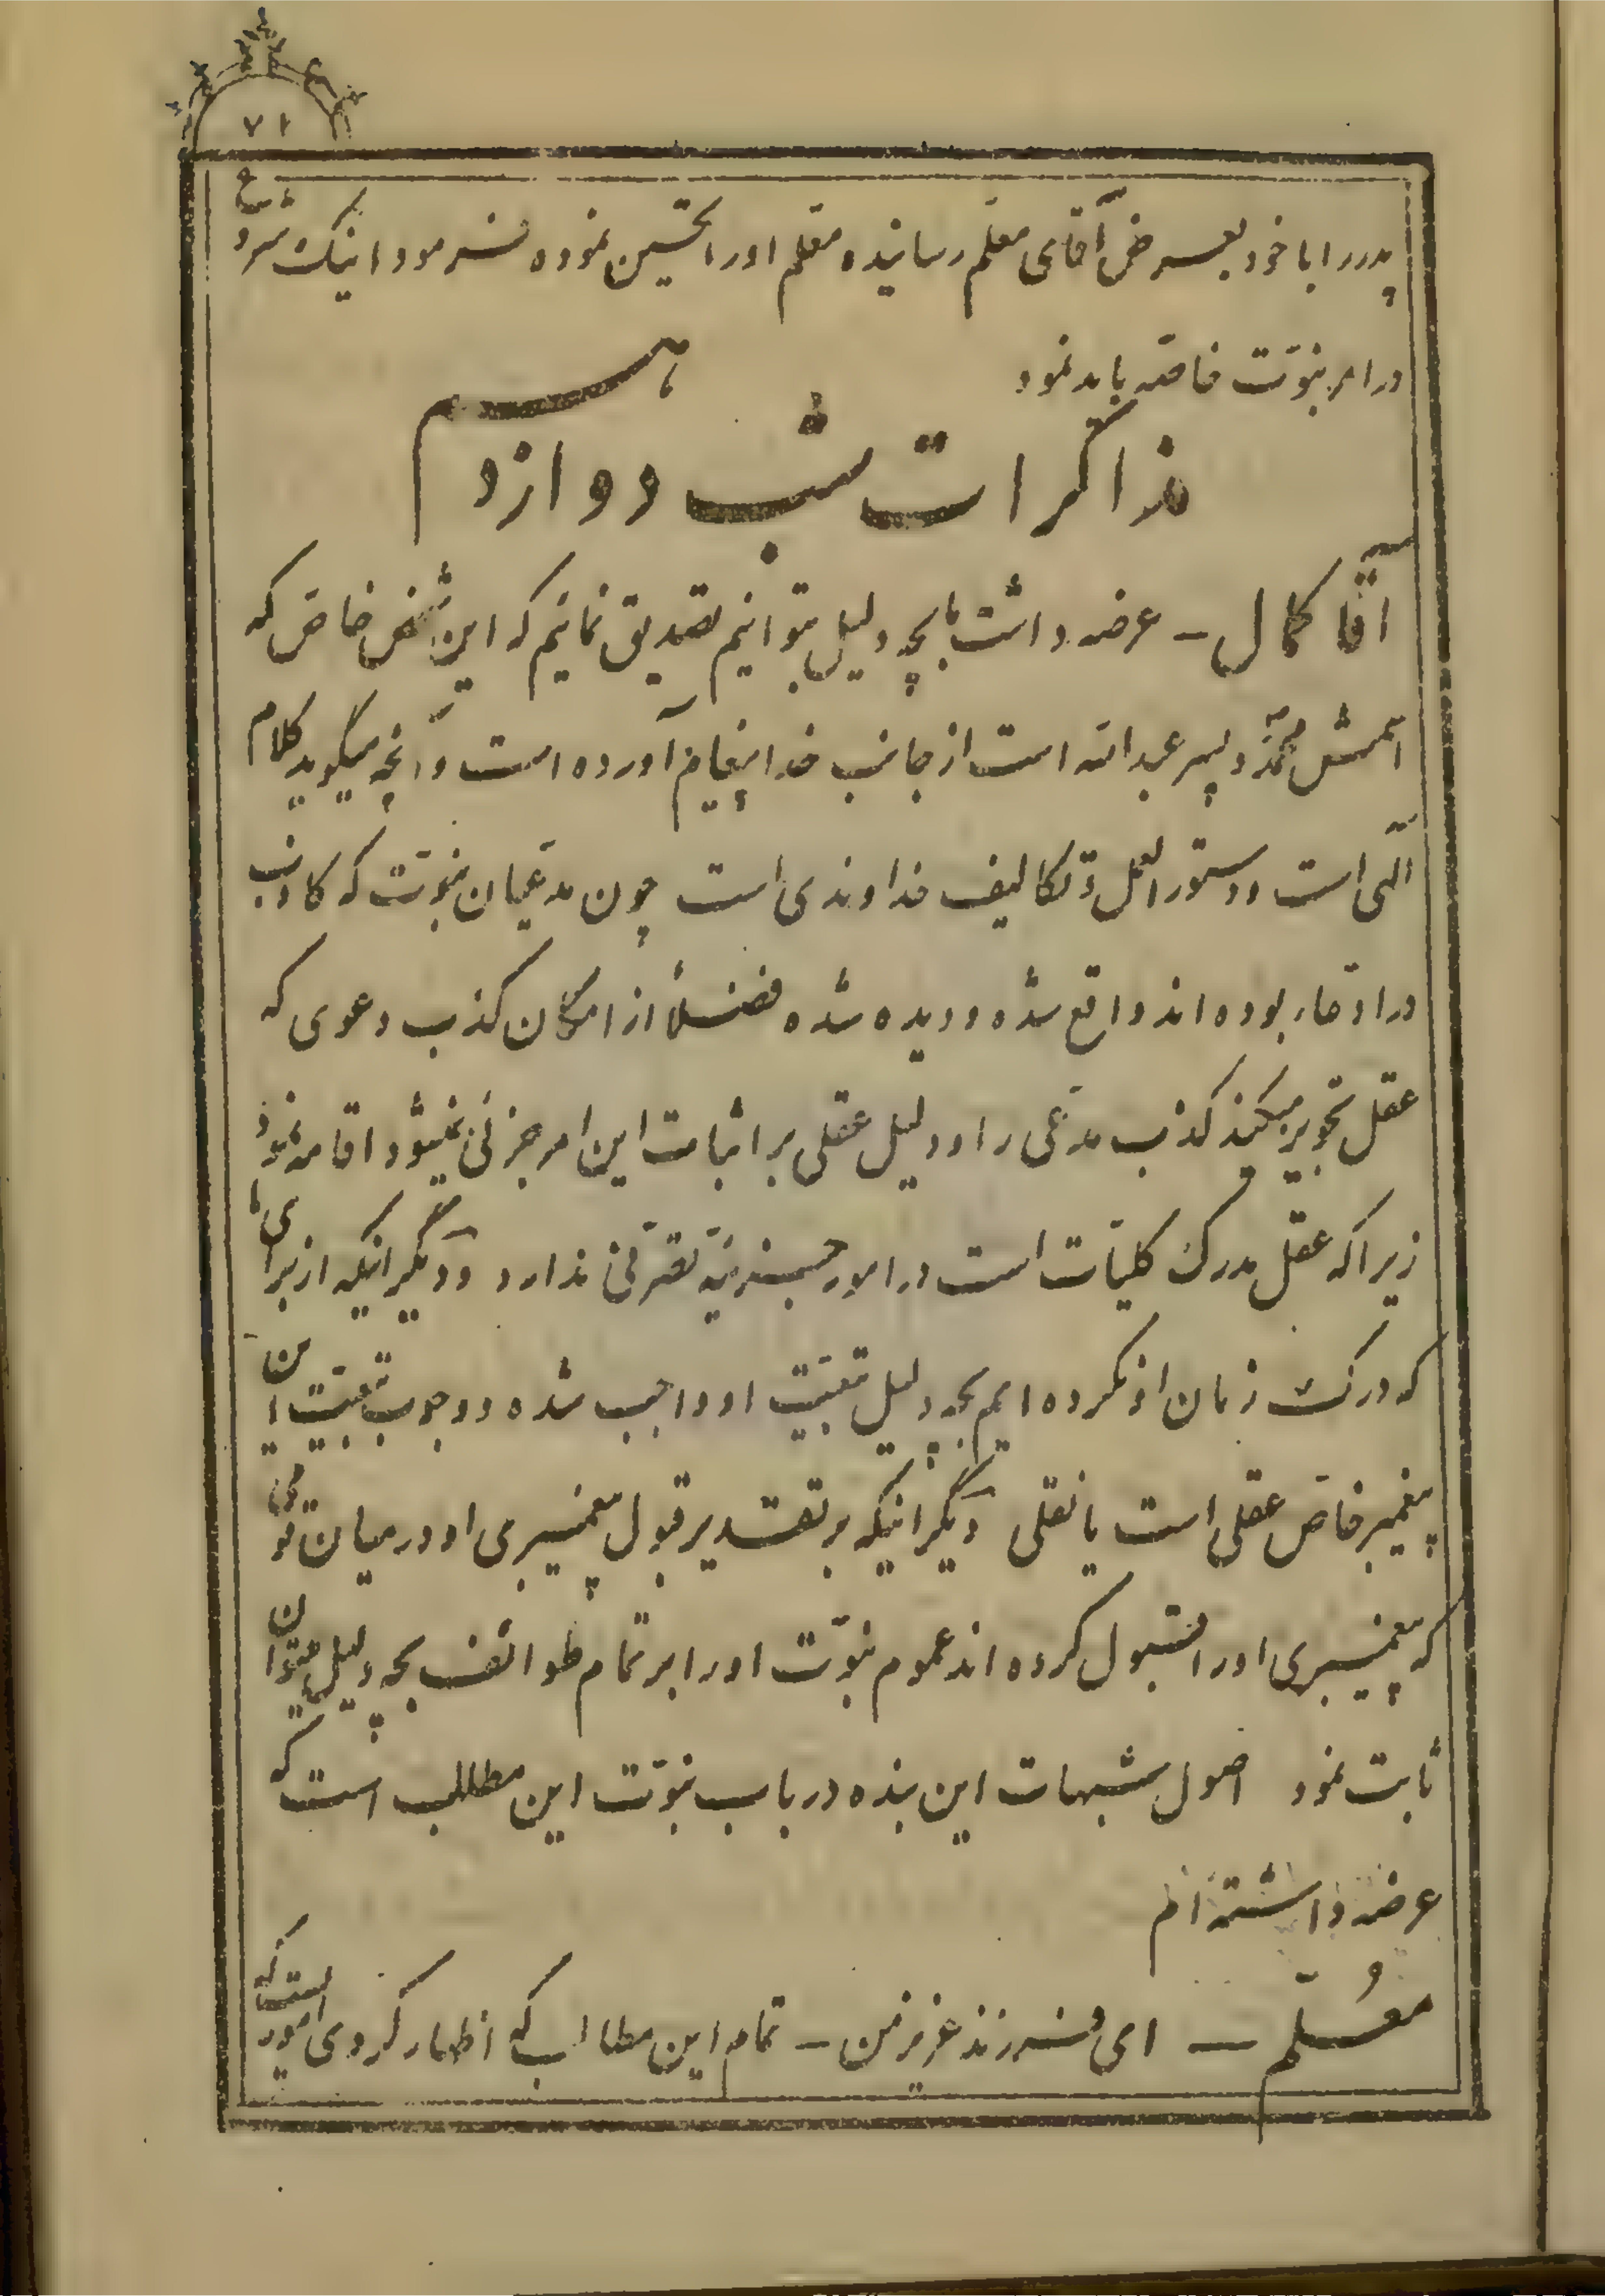 ۷۱
پدررا باخود بعرض آقای معلم رسانیده معلم اورا تحسین نموده فرمود اینک شروع
درامر نبوّت خاصّه باید نمود
مذاکرات شب دوازدهم
آقا کمال – عرضه داشت بچه دلیل بتوانیم تصدیق نمائیم که این شخص خاصّ که
اسمش محمّد و پسر عبدالله است از جانب خدا پیغام آورده است و آنچه میگوید کلام
الهی است و دستورالعمل و تکالیف خداوندی است چون مدعیان نبوّت که کاذب
در ادعاء بوده اند واقع شده و دیده شده فضلاً از امکان کذب دعوی که
عقل تجویز میکند کذب مدعی را و دلیل عقلی بر اثبات این امر جزئی نمیشود اقامه نمود
زیراکه عقل مدرک کلیّات است در امور جزئیّه تصرّفی ندارد و دیگر اینکه از برای ما
که درک زمان او نکرده ایم بچه دلیل تبعیّت او واجب شده و وجوب تبعیّت این
پیغمبر خاصّ عقلی است یا نقلی دیگر اینکه بر تقدیر قبول پیغمبری او در میان قومی
که پیغمبری اورا قبول کرده اند عموم نبوّت اورا بر تمام طوائف بچه دلیل میتوان
ثابت نمود اصول شبهات این بنده در باب نبوّت این مطالب است که
عرضه داشته ام
معلّم – ای فرزند عزیز من – تمام این مطالب که اظهار کردی اموریست که